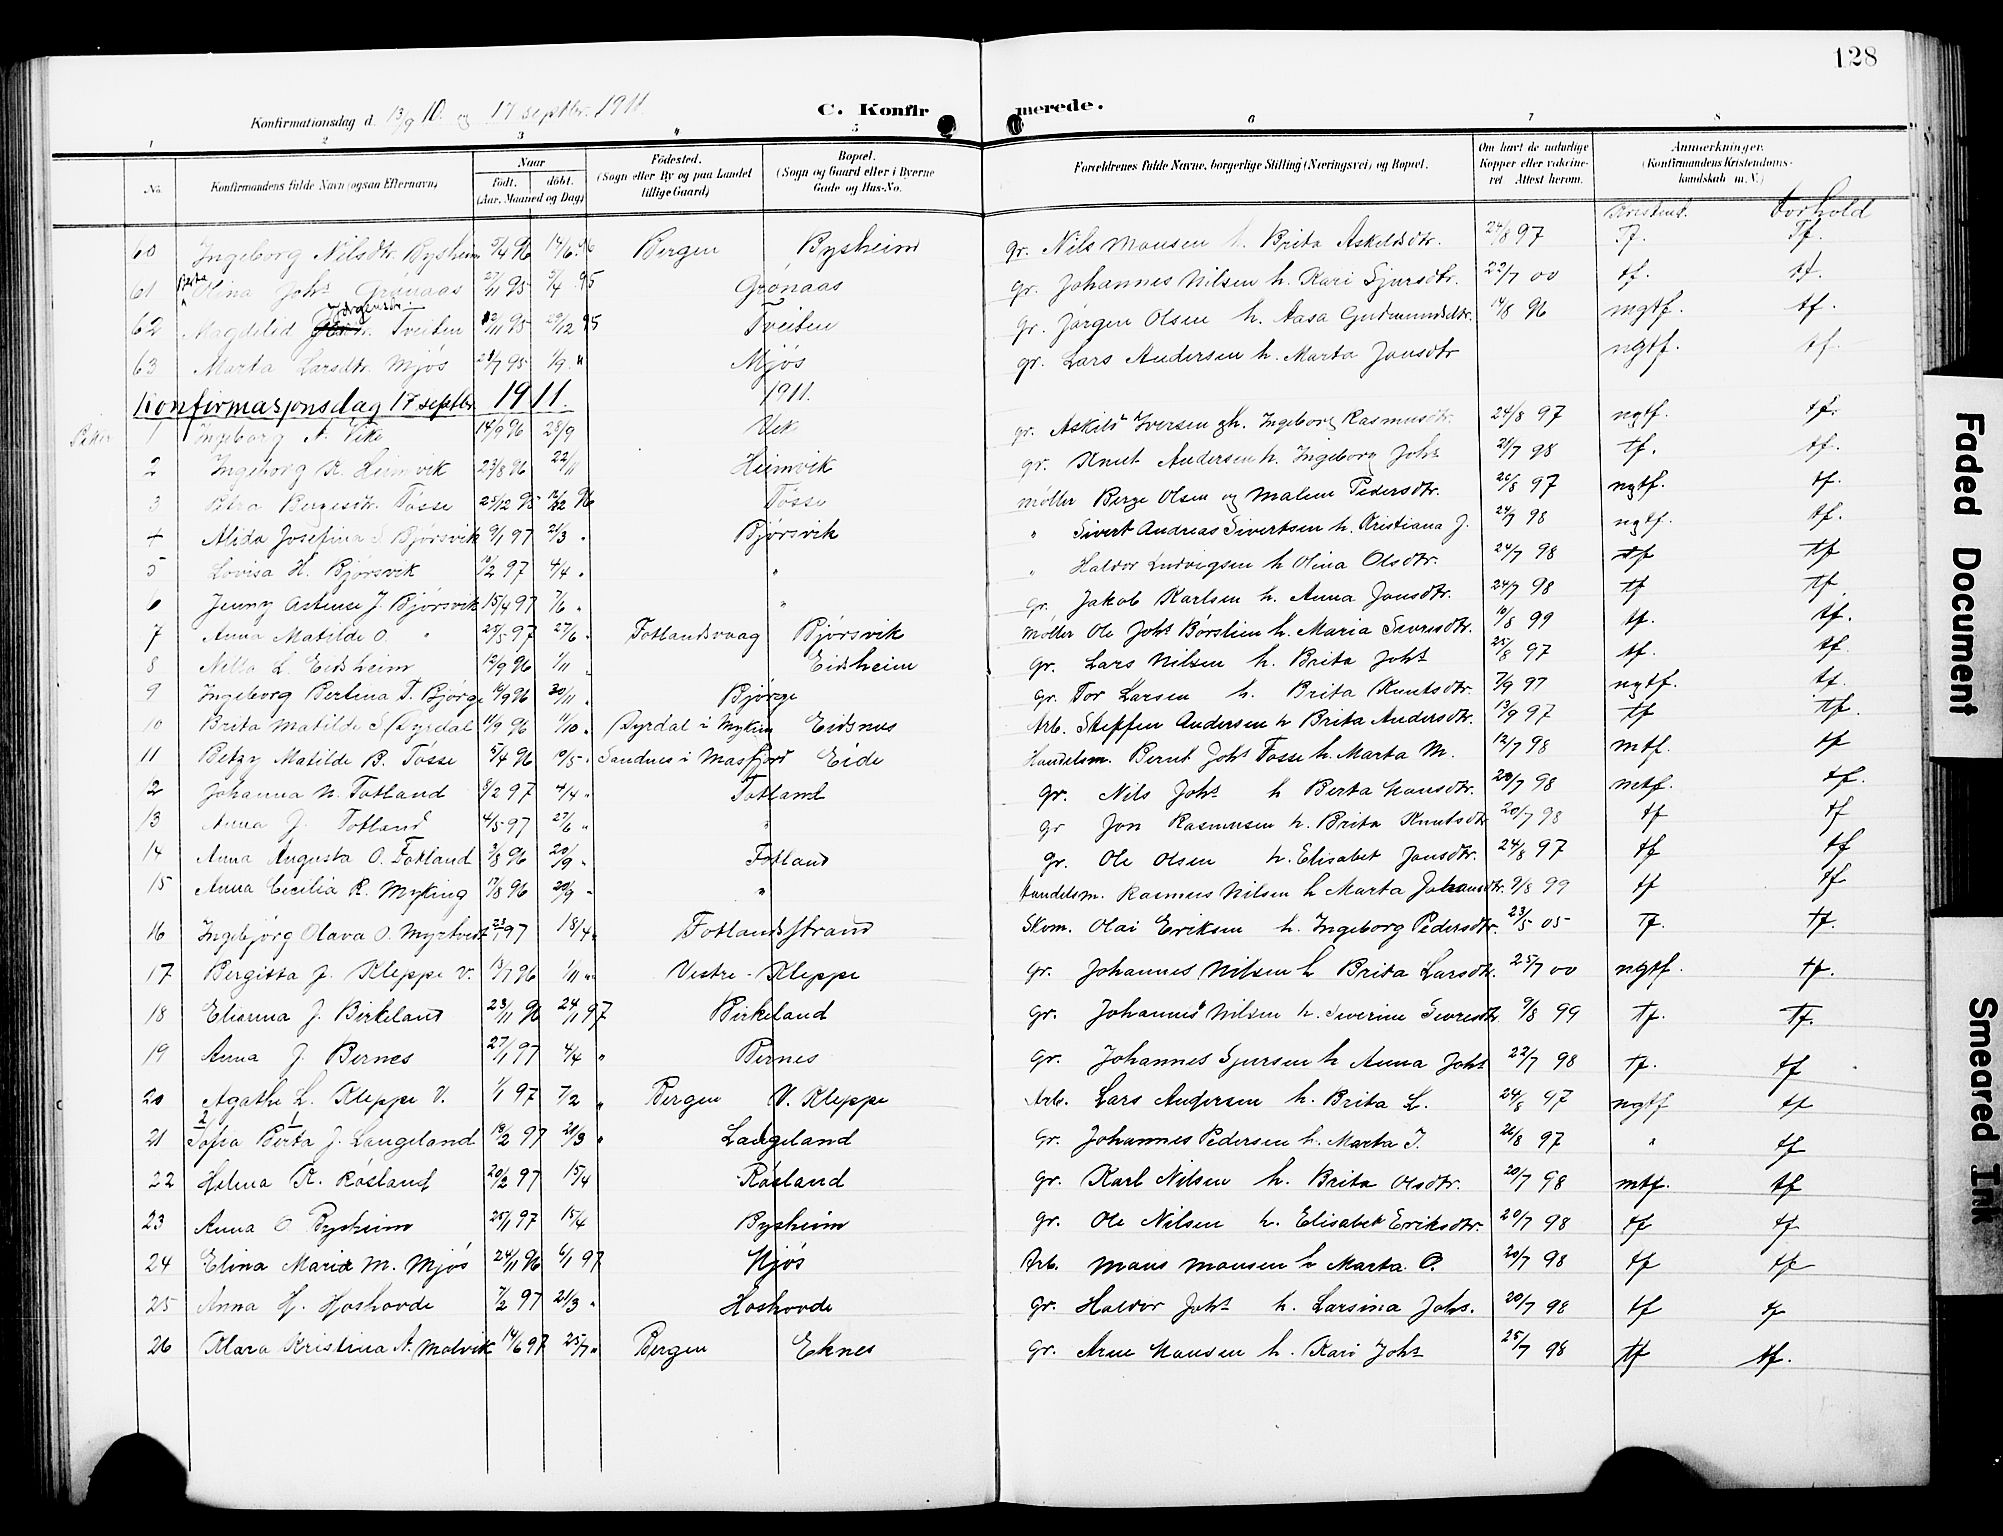 128
Konfirmationsdag d. 13/9 10. og 17 septbr. 1911.
C. Konfirmerede.
1 2 3 4 5 6 7 8
No. Konfirmandens fulde Navn (ogsaa Efternavn). Naar født. døbt. (Aar, Maaned og Dag) Fødested. (Sogn eller By og paa Landet tillige Gaard) Bopæl. (Sogn og Gaard eller i Byerne Gade og Hus-No. Forældrenes fulde Navne, borgerlige Stilling (Næringsvei) og Bopæl. Om havt de naturlige Kopper eller vakcineret. Attest herom. Anmerkninger. (Konfirmandens Kristendomskundskab m. V.)
Kristend. Forhold
60 Ingeborg Nilsdtr. Bysheim 5/4 96 14/6 96 Bergen Bysheim gr. Nils Monsen h. Brita Askildsdtr. 24/8 97 Tf. Tf.
61 Olina Johs Grønaas 27/11 95 5/4 95 Grønaas gr. Johannes Nilsen h. Kari Sjursdtr. 22/7 00 tf. tf.
62 Magdelid Jørgensdtr. Tveiten 22/11 95 29/12 95 Tveiten gr. Jørgen Olsen h. Aasa Gudmundsdtr. 14/8 96 mgtf. tf.
63 Marta Larsdtr. Mjøs 28/7 95 1/9 " Mjøs gr. Lars Andersen h. Marta Jonsdtr ngtf. tf.
Konfirmasjonsdag 17 septbr. 1911. 1911.
1 Ingeborg A. Vike 14/9 96 28/9 Vik gr. Askild Iversen h. Ingeborg Rasmusdtr. 24/8 97 ngtf. tf.
2 Ingeborg K. Heimvik 23/8 96 22/11 Heimvik gr. Knut Andersen h. Ingeborg Johs 21/7 98 tf. tf.
3 Petra Bergesdtr. Tøsse 25/12 95 96 Tøsse møller Berge Olsen og Malene Pedersdtr. 26/8 97 ngtf. tf.
4 Alida Josefina S Bjørsvik 9/1 97 21/3 " Bjørsvik " Sivert Andreas Sivertsen h. Kristiana J. 24/7 98 ngtf. tf.
5 Lovisa H. Bjørsvik 10/2 97 4/4 " " " Haldor Ludvigsen h Olina Olsdtr. 24/7 98 tf tf
6 Jenny Astense J. Bjørsvik 15/4 97 7/6 " " gr. Jakob Karlsen h. Anna Jonsdtr. 24/7 98 tf tf.
7 Anna Matilde O. " 25/5 97 27/6 " Fotlandsvaag Bjørsvik møller Ole Johs Børslien h. Maria Siversdtr. 10/8 99 tf. tf.
8 Netta L. Eidsheim 12/9 96 1/11 " Eidsheim gr. Lars Nilsen h. Brita Johs 25/8 97 tf. tf.
9 Ingeborg Bertina T. Bjørge 14/9 96 20/11 " Bjørge gr. Tor Larsen h. Brita Knutsdtr. 7/9 97 ngtf. tf.
10 Brita Matilde S. Dyrdal 11/9 96 11/10 " Dyrdal i Myking Eidsnes Arb. Steffen Andersen h Brita Andersdtr. 13/9 97 tf tf.
11 Betzy Matilde B. Tøsse 5/4 96 10/5 " Sandnes i Masfjord Eide Handelsm. Bernt Johs Tosse h. Marta M. 12/7 98 mtf. tf
2 Johanna N. Totland 8/2 97 4/4 " Totland gr. Nils Johs h Berta Monsdtr. 20/7 98 mtf. tf.
13 Anna J. Totland 4/5 97 27/6 " " gr Jon Rasmusen h. Brita Knutsdtr 20/7 98 tf tf
14 Anna Augusta O. Fotland 3/8 96 20/9 " Fotland gr. Ole Olsen h. Elisabet Jonsdtr. 24/8 97 tf tf
15 Anna Cecilia R. Myking 17/8 96 20/9 " " Handelsm. Rasmus Nilsen h Marta Johansdtr. 9/8 99 tf tf
16 Ingebjørg Olava O. Myrtvedt 23/1 97 18/4 " Fotlandsstrand Skom. Olai Eriksen h. Ingeborg Pedersdtr. 23/5 05 Tf. tf.
17 Bergitta J. Kleppe V. 13/7 96 1/11 " Vestre-Kleppe gr. Johannes Nilsen h Brita Larsdtr. 25/7 00 ngtf. tf.
18 Elianna J. Birkeland 23/11 96 24/1 97 Birkeland gr. Johannes Nilsen h. Severine Sivresdtr. 9/8 99 tf. Tf.
19 Anna J. Bernes 27/1 97 4/4 " Bernes gr. Johannes Sjursen h Anna Johs 22/7 98 tf. tf
20 Agathe L. Kleppe V. 1/1 97 7/2 " Bergen V. Kleppe Arb. Lars Andersen h. Brita L. 24/8 97 ngtf tf
21 Sofia Berta J. Langeland 13/2 97 21/3 " Langeland gr. Johannes Pedersen h. Marta I. 26/8 97 " tf
22 Helena K. Røsland 20/2 97 15/4 Røsland gr. Karl Nilsen h. Brita Olsdtr. 20/7 98 mtf. tf
23 Anna O. Bysheim 25/1 97 15/4 Bysheim gr. Ole Nilsen h. Elisabet Eriksdtr. 20/7 98 tf tf
24 Elina Maria M. Mjøs 24/11 96 6/1 97 Mjøs Arb. Mons Monsen h Marta O. 20/7 98 tf tf
25 Anna H. Hoshovde 7/2 97 21/3 " Hoshovde gr. Haldor Johs h. Larsina Johs. 20/7 98 tf tf
26 Klara Kristina A. Molvik 14/6 97 25/7 " Bergen Eknes gr. Arne Monsen h. Kari Johs 25/7 98 tf tf.
Faded Document
Smeared Ink